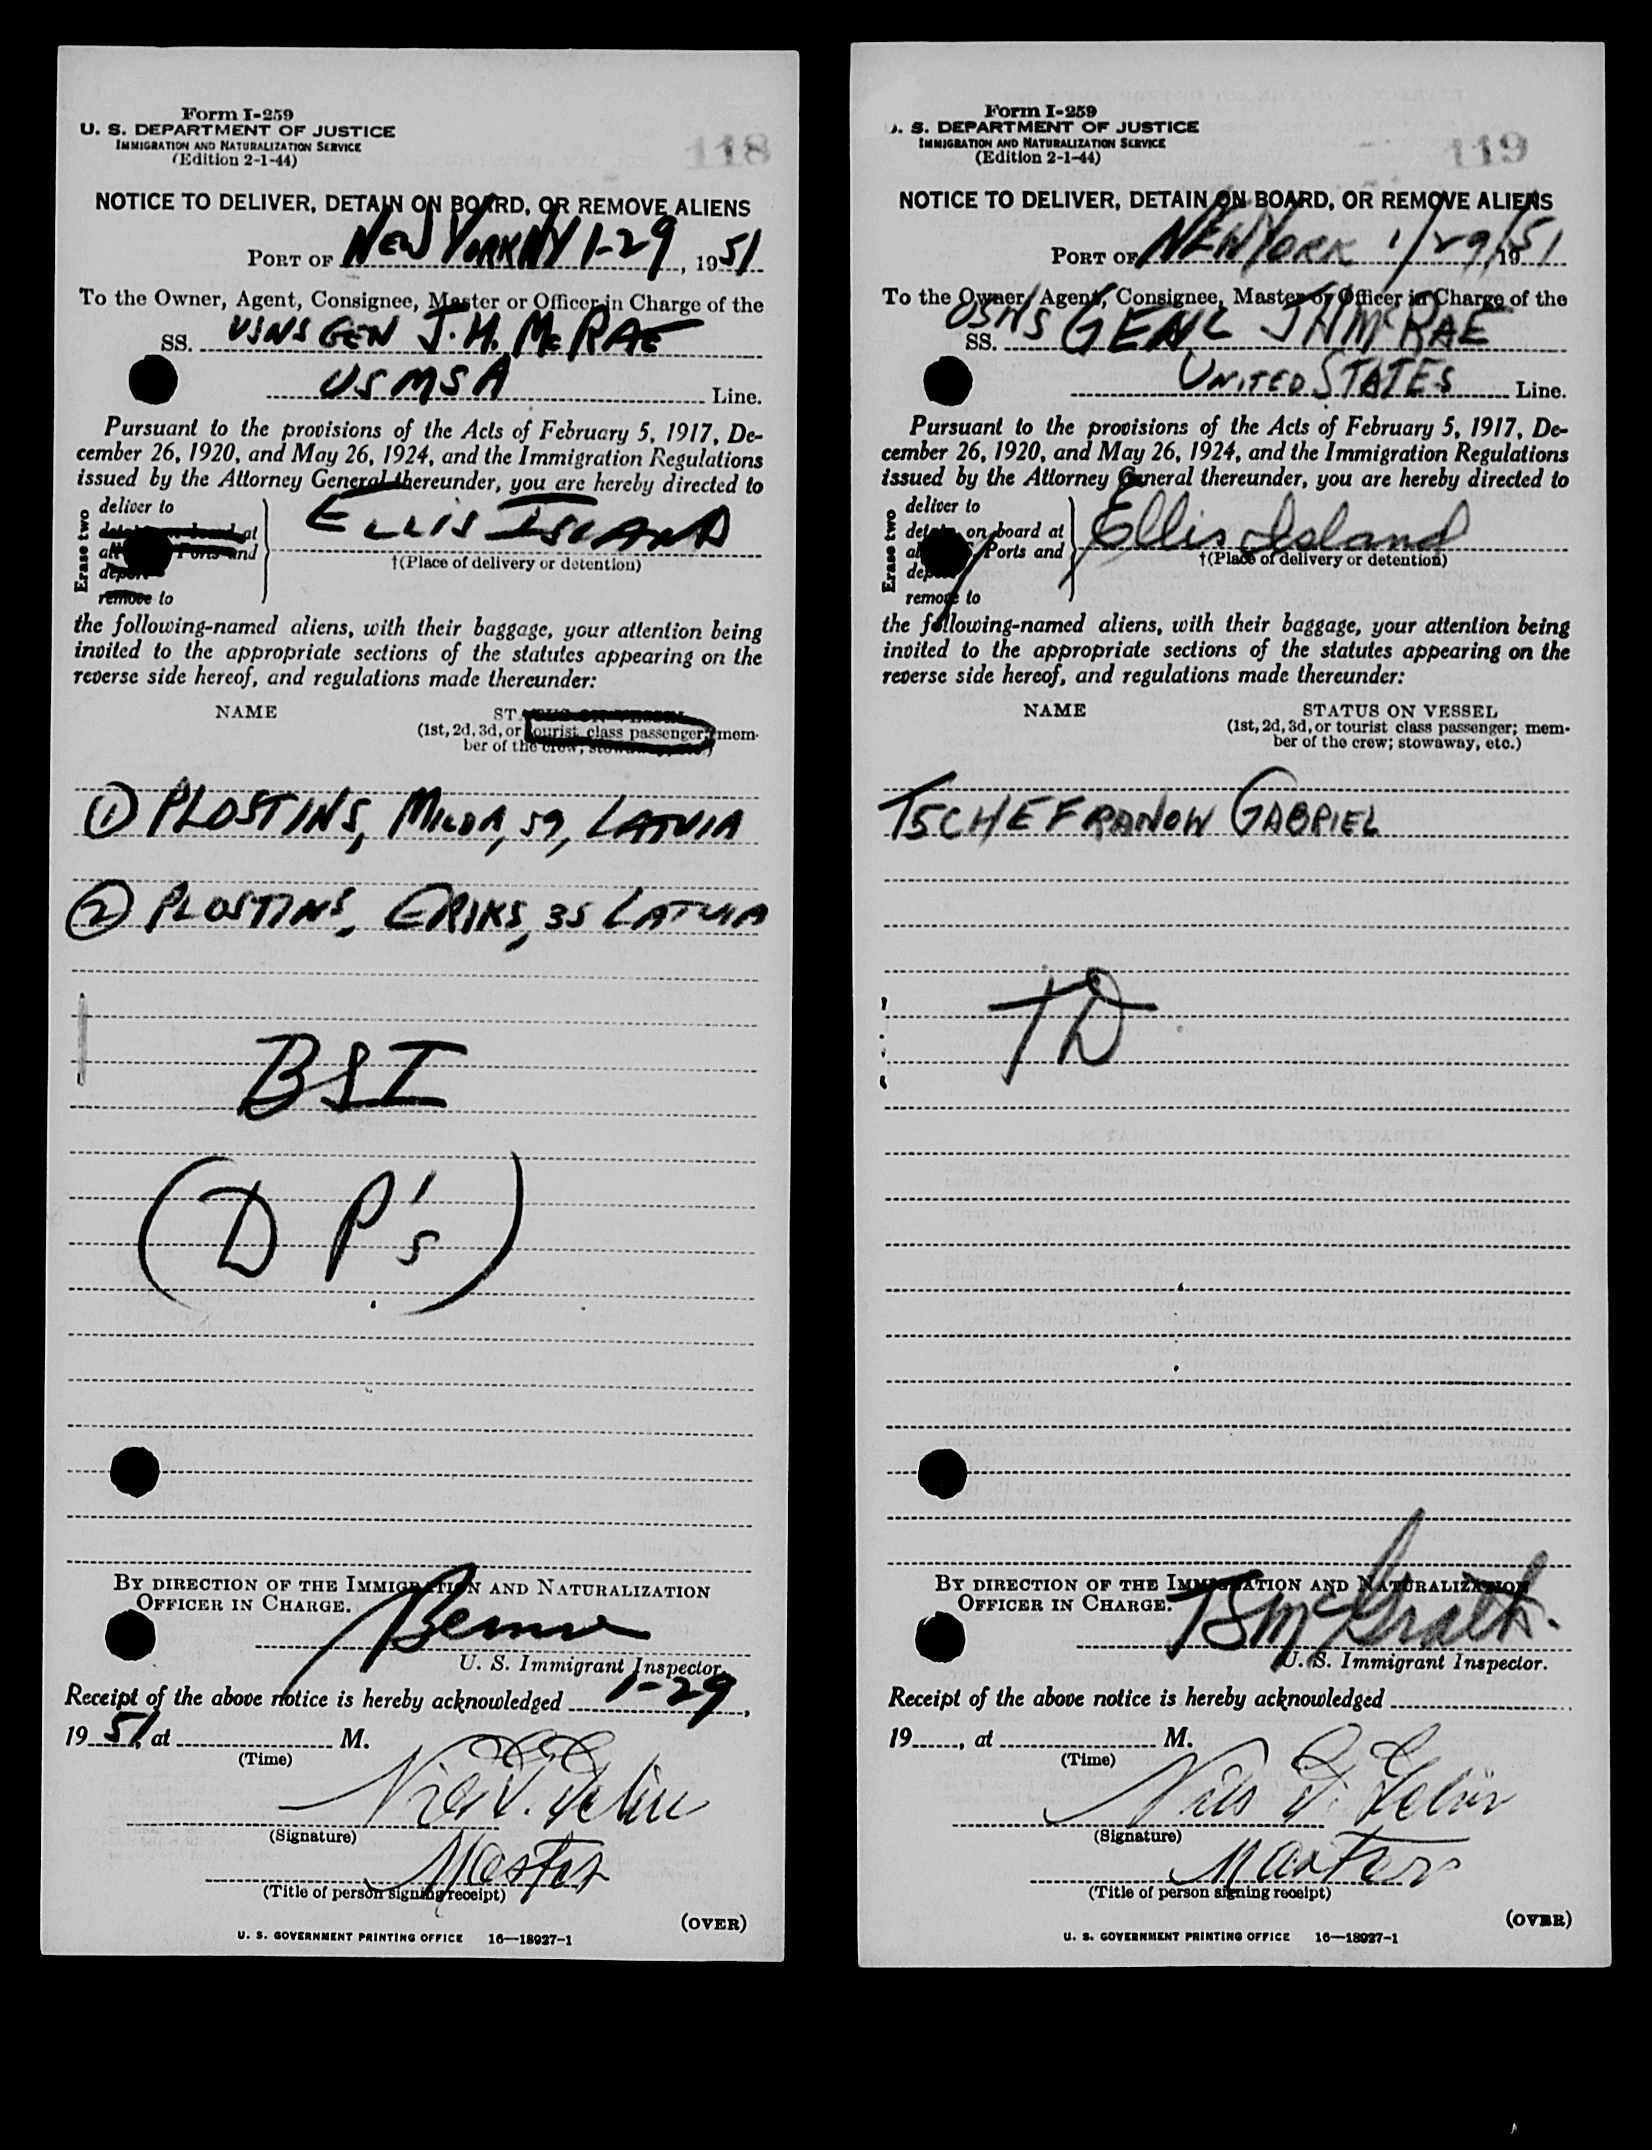 Form I-259
U. S. DEPARTMENT OF JUSTICE
IMMIGRATION AND NATURALIZATION SERVICE
(Edition 2-1-44)
118
NOTICE TO DELIVER, DETAIN ON BOARD, OR REMOVE ALIENS
PORT OF NEW YORK NY 1-29, 1951
To the Owner, Agent, Consignee, Master or Officer in Charge of the
SS. USNS GEN J. H. McRAE
USMSA Line.
Pursuant to the provisions of the Acts of February 5, 1917, De-
cember 26, 1920, and May 26, 1924, and the Immigration Regulations
issued by the Attorney General thereunder, you are hereby directed to
Erase two
deliver to
at
Ports and
remove to
ELLIS ISLAND
†(Place of delivery or detention)
the following-named aliens, with their baggage, your attention being
invited to the appropriate sections of the statutes appearing on the
reverse side hereof, and regulations made thereunder:
NAME
STATUS ON VESSEL
(1st, 2d, 3d, or tourist class passenger; mem-
ber of the crew; stowaway, etc.)
① PLOSTINS, MILDA, 59, LATVIA
② PLOSTINS, ERIKS, 35 LATVIA
BSI
(DP's)
BY DIRECTION OF THE IMMIGRATION AND NATURALIZATION
OFFICER IN CHARGE.
U. S. Immigrant Inspector.
Receipt of the above notice is hereby acknowledged 1-29,
1951, at M.
(Time)
(Signature)
Master
(Title of person signing receipt)
(OVER)
U. S. GOVERNMENT PRINTING OFFICE 16—18927-1
Form I-259
. S. DEPARTMENT OF JUSTICE
IMMIGRATION AND NATURALIZATION SERVICE
(Edition 2-1-44)
119
NOTICE TO DELIVER, DETAIN ON BOARD, OR REMOVE ALIENS
PORT OF NEW YORK 1/29/, 1951
To the Owner, Agent, Consignee, Master or Officer in Charge of the
SS. USNS GENL J H McRAE
UNITED STATES Line.
Pursuant to the provisions of the Acts of February 5, 1917, De-
cember 26, 1920, and May 26, 1924, and the Immigration Regulations
issued by the Attorney General thereunder, you are hereby directed to
Erase two
deliver to
on board at
Ports and
remove to
Ellis Island
†(Place of delivery or detention)
the following-named aliens, with their baggage, your attention being
invited to the appropriate sections of the statutes appearing on the
reverse side hereof, and regulations made thereunder:
NAME
STATUS ON VESSEL
(1st, 2d, 3d, or tourist class passenger; mem-
ber of the crew; stowaway, etc.)
TSCHEFRANOW GABRIEL
TD
BY DIRECTION OF THE IMMIGRATION AND NATURALIZATION
OFFICER IN CHARGE.
McGrath.
U. S. Immigrant Inspector.
Receipt of the above notice is hereby acknowledged
19, at M.
(Time)
Nils
(Signature)
Master
(Title of person signing receipt)
(OVER)
U. S. GOVERNMENT PRINTING OFFICE 16—18927-1